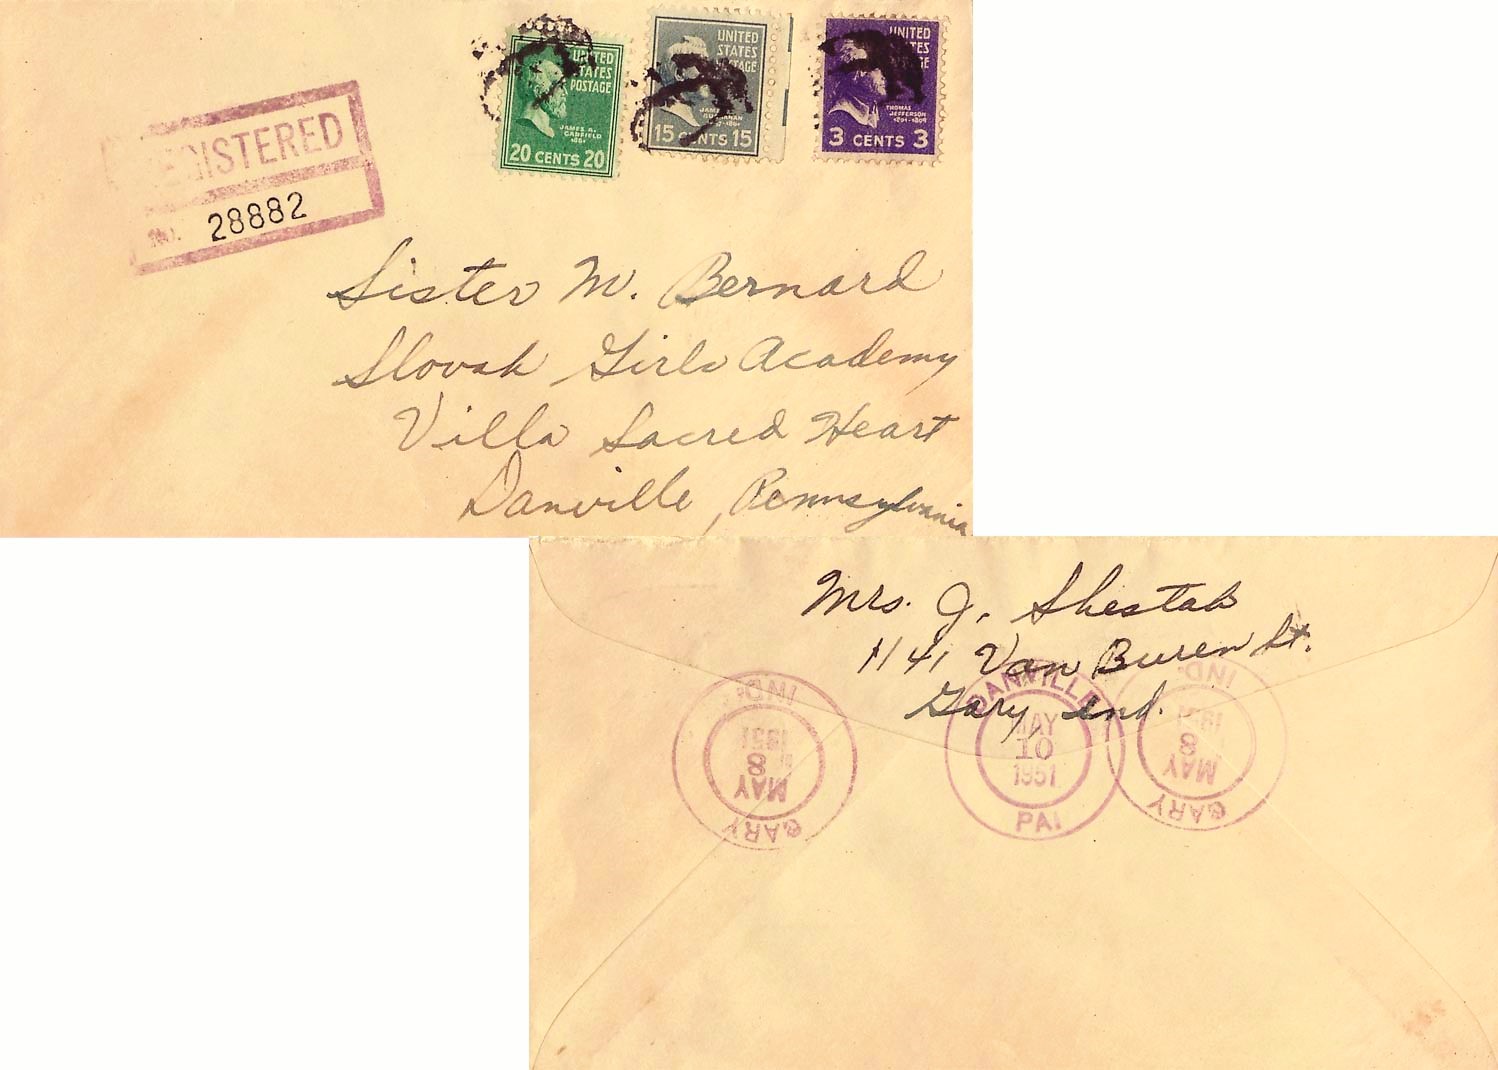 UNITED
STATES
POSTAGE
JAMES A.
GARFIELD
1881
20 CENTS 20
UNITED
STATES
POSTAGE
JAMES
BUCHANAN
15 CENTS 15
UNITED
STATES
POSTAGE
THOMAS
JEFFERSON
1801-1809
3 CENTS 3
REGISTERED
No. 28882
Sister M. Bernard
Slovak Girls Academy
Villa Sacred Heart
Danville, Pennsylvania
Mrs. J. Shestak
1141 Van Buren St.
Gary, Ind.
GARY
MAY
8
1951
IND.
DANVILLE
MAY
10
1951
PA.
GARY
MAY
8
1951
IND.